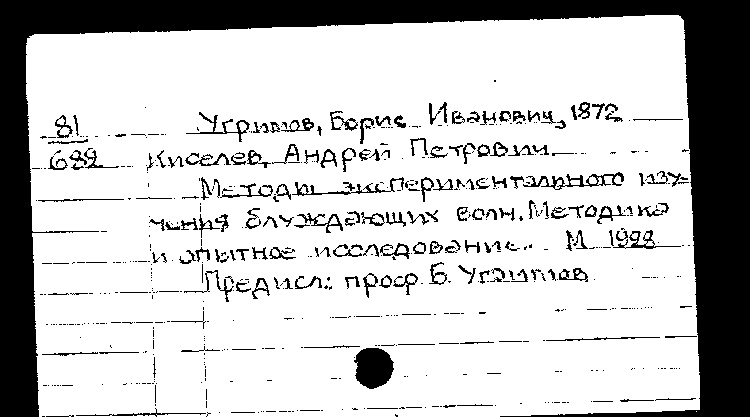 81 Угримов, Борис Иванович, 1872
682 Киселев, Андрей Петрович.
Методы экспериментального изу-
чения блуждающих волн. Методика
и опытное исследование.. М 1928
Предисл.: проф Б. Угримов